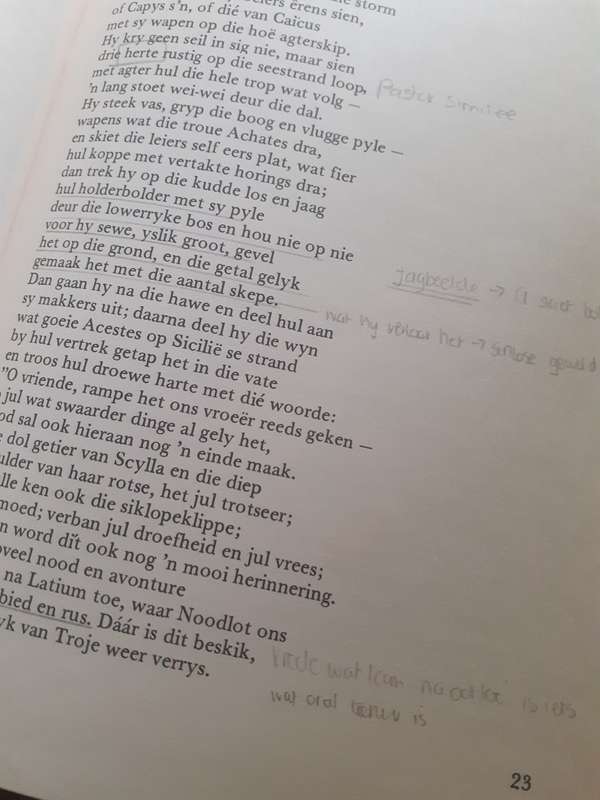 storm
of Capys s'n, of dié van Caïcus
met sy wapen op die hoë agterskip.
Hy kry geen seil in sig nie, maar sien
drie herte rustig op die seestrand loop,
met agter hul die hele trop wat volg —
'n lang stoet wei-wei deur die dal.
Hy steek vas, gryp die boog en vlugge pyle —
wapens wat die troue Achates dra,
en skiet die leiers self eers plat, wat fier
hul koppe met vertakte horings dra;
dan trek hy op die kudde los en jaag
hul holderbolder met sy pyle
deur die lowerryke bos en hou nie op nie
voor hy sewe, yslik groot, gevel
het op die grond, en die getal gelyk
jagbeelde →
gemaak het met die aantal skepe.
wat hy verloor het →
Dan gaan hy na die hawe en deel hul aan
sy makkers uit; daarna deel hy die wyn
wat goeie Acestes op Sicilië se strand
by hul vertrek getap het in die vate
en troos hul droewe harte met dié woorde:
"O vriende, rampe het ons vroeër reeds geken —
jul wat swaarder dinge al gely het,
sal ook hieraan nog 'n einde maak.
dol getier van Scylla en die diep
van haar rotse, het jul trotseer;
ken ook die siklopeklippe;
verban jul droefheid en jul vrees;
word dít ook nog 'n mooi herinnering.
nood en avonture
na Latium toe, waar Noodlot ons
en rus. Dáár is dit beskik,
van Troje weer verrys.
wat is
23